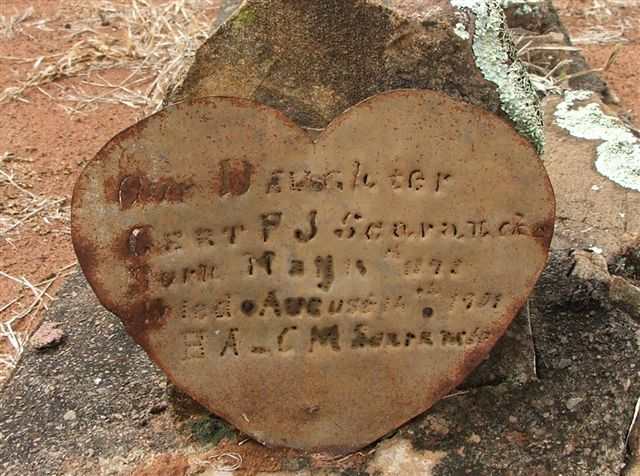 Our Daughter
Gert F J Scarancke
Born May 15th 1895
Died August 14th 1901
H A - C M Scarancke